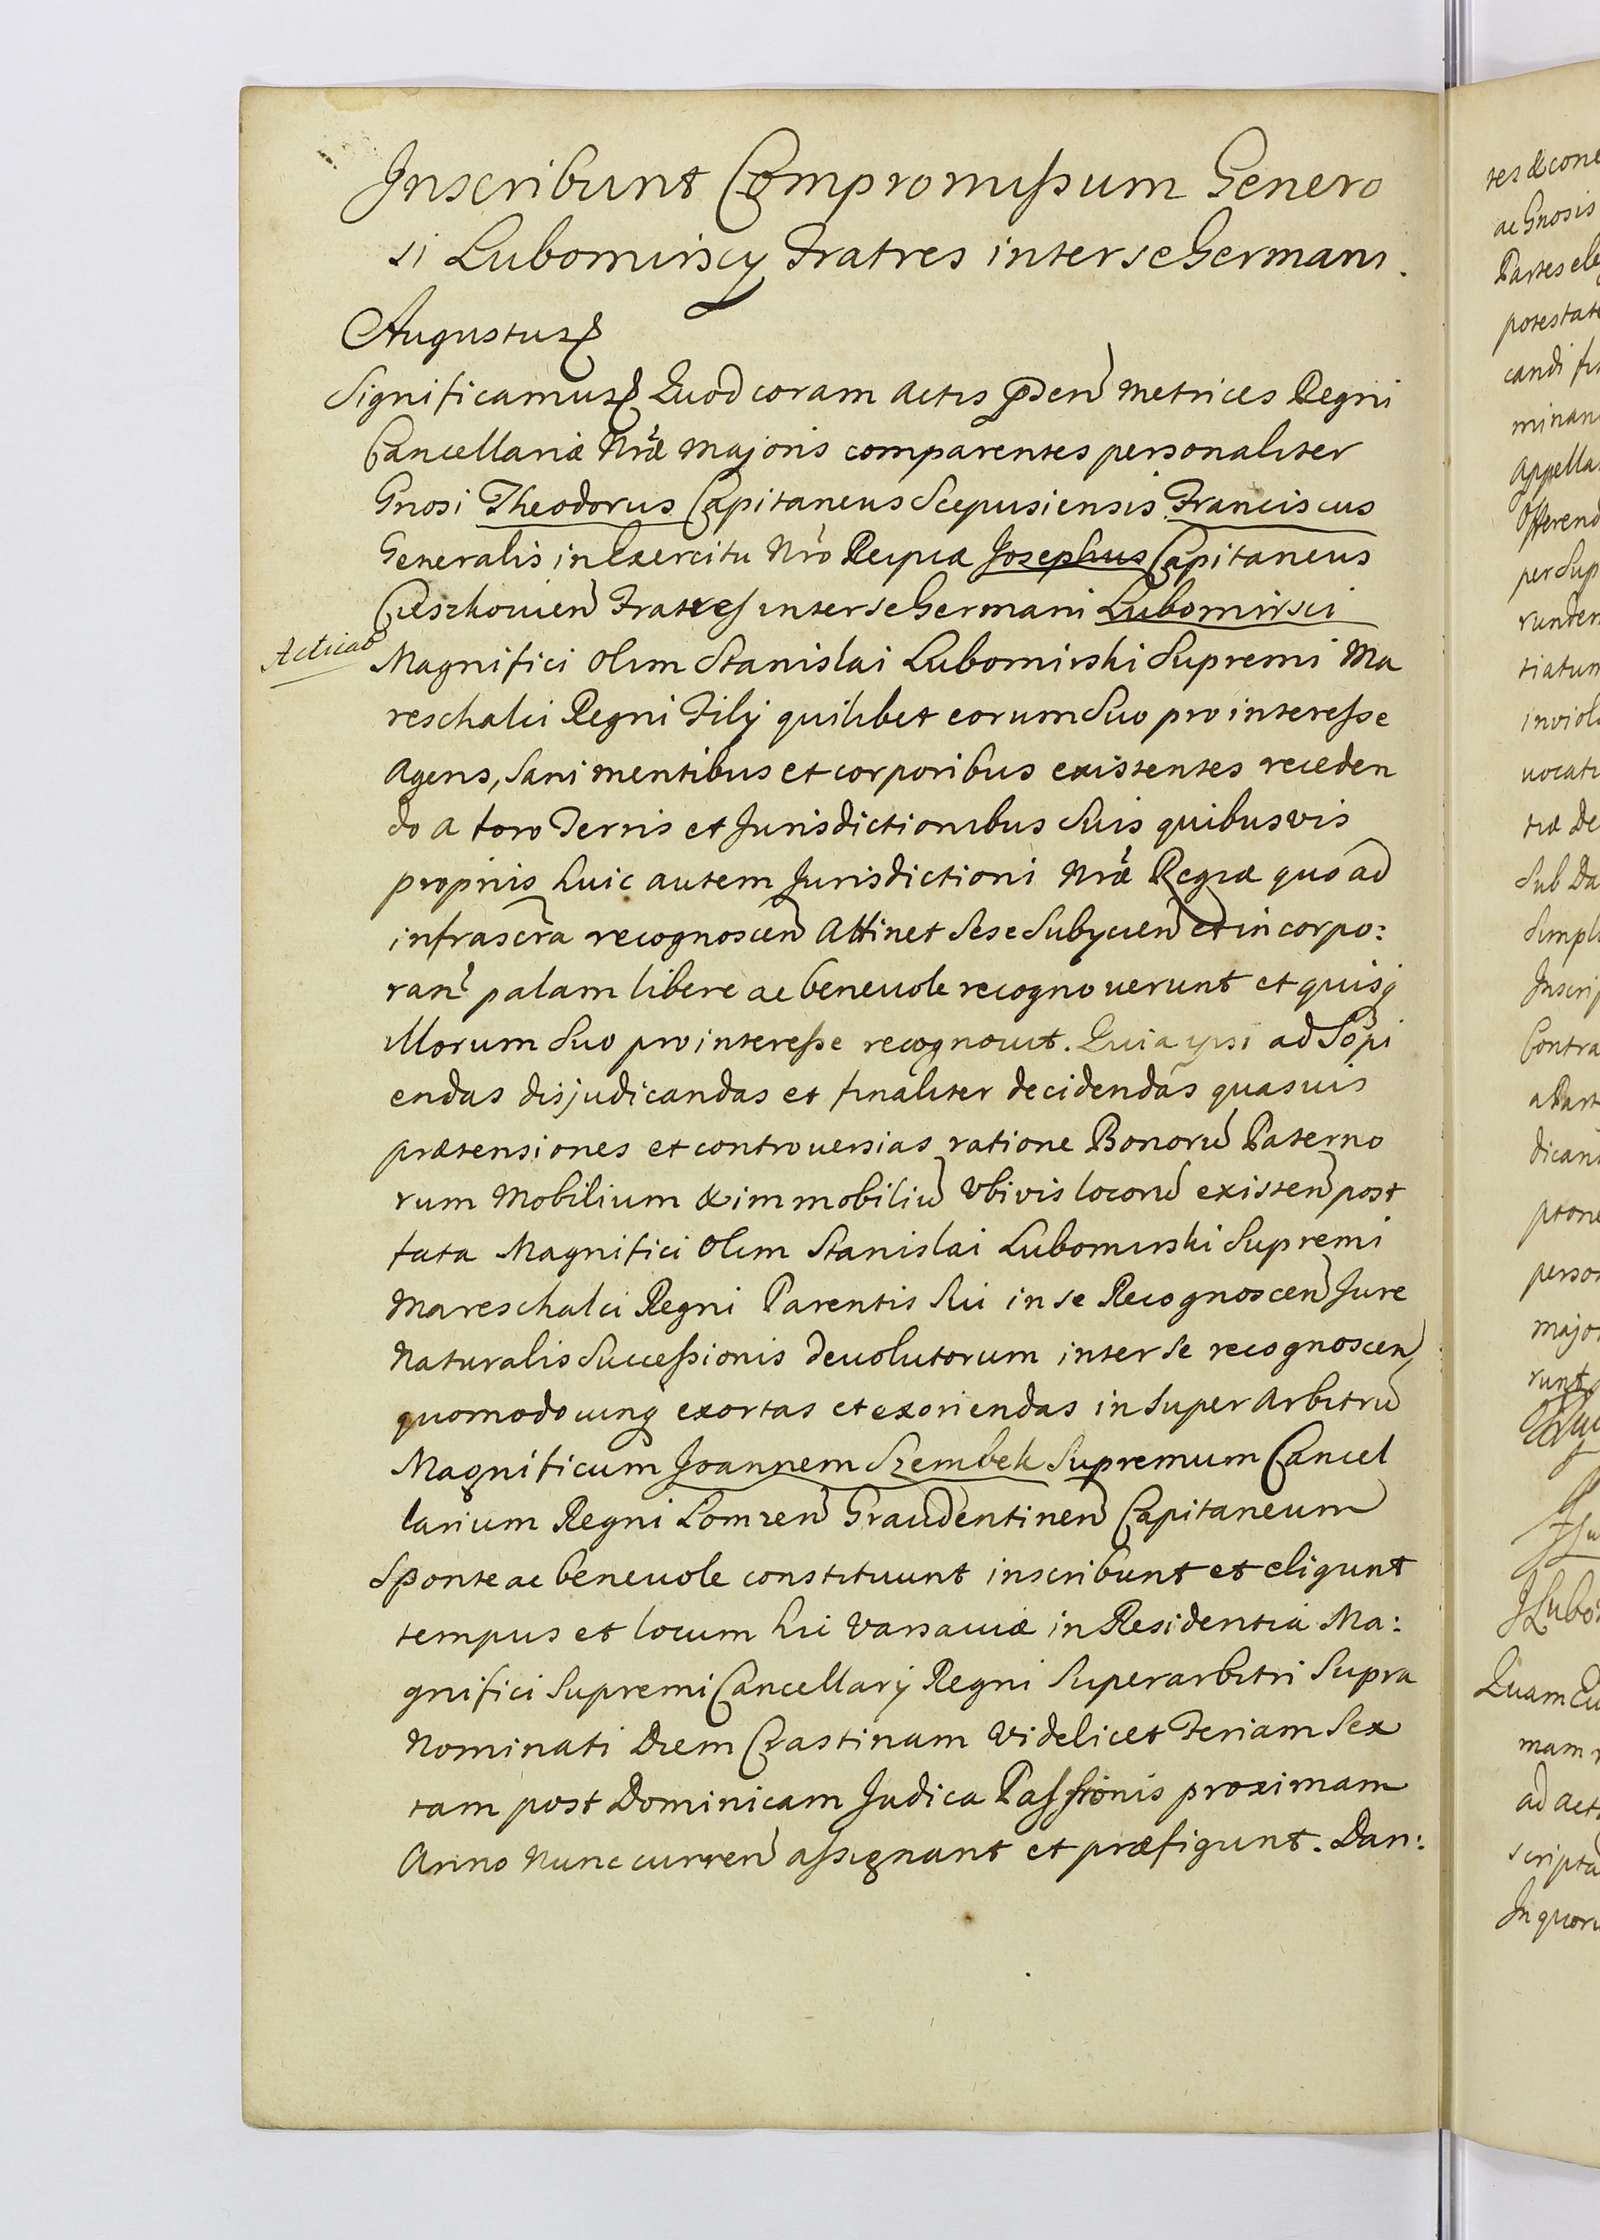 Inscribunt Compromissum Genero
si Lubomirscy Fratres inter se Germani.
Augustus
Significamus Quod coram Actis pñden̄ Metrices Regni
Cancellariæ Nr̃æ Majoris comparentes personaliter
Gnosi Theodorus Capitaneus Scepusiensis Franciscus
Generalis in Exercitu Nrõ Reipcæ Josephus Capitaneus
Fratres inter se Germani Lubomirsci
Magnifici olim Stanislai Lubomirski Supremi Ma
reschalci Regni Filij quilibet eorum Suo pro interesse
Agens, Sani mentibus et corporibus existentes receden
do a foro Terris et Jurisdictionibus Suis quibusvis
proprijs huic autem Jurisdictioni Nr̃æ Regiæ quo ad
infrascr̃a recognoscen̄ Attinet Sese Subycien̄ et incorpo:
ran̄ palam libere ac beneuole recognouerunt et quisq
illorum Suo pro interesse recognouit. Quia ipsi ad Sopi
endas disjudicandas et finaliter decidendas quasuis
prætensiones et controuersias ratione Bonorū Paterno
rum Mobilium & immobiliū Vbivis locorū existen̄ post
fata Magnifici Olim Stanislai Lubomirski Supremi
Mareschalci Regni Parentis Sui in se Recognoscen̄ Jure
Naturalis Successionis deuolutorum inter Se recognoscen̄
quomodocunq exortas et exoriendas in Super Arbitrū
Magnificum Joannem Szembek Supremum Cancel
larium Regni Lomzen̄ Graudentinen̄ Capitaneum
Sponte ac beneuole constituunt inscribunt et eligunt
tempus et locum hic Varsauiæ in Residentia Ma:
gnifici Supremi Cancellarij Regni Superarbitri Supra
Nominati Diem Crastinam Videlicet Feriam Sex
tam post Dominicam Judica Passionis proximam
Anno Nunc curren̄ assignant et præfigunt. Dan: